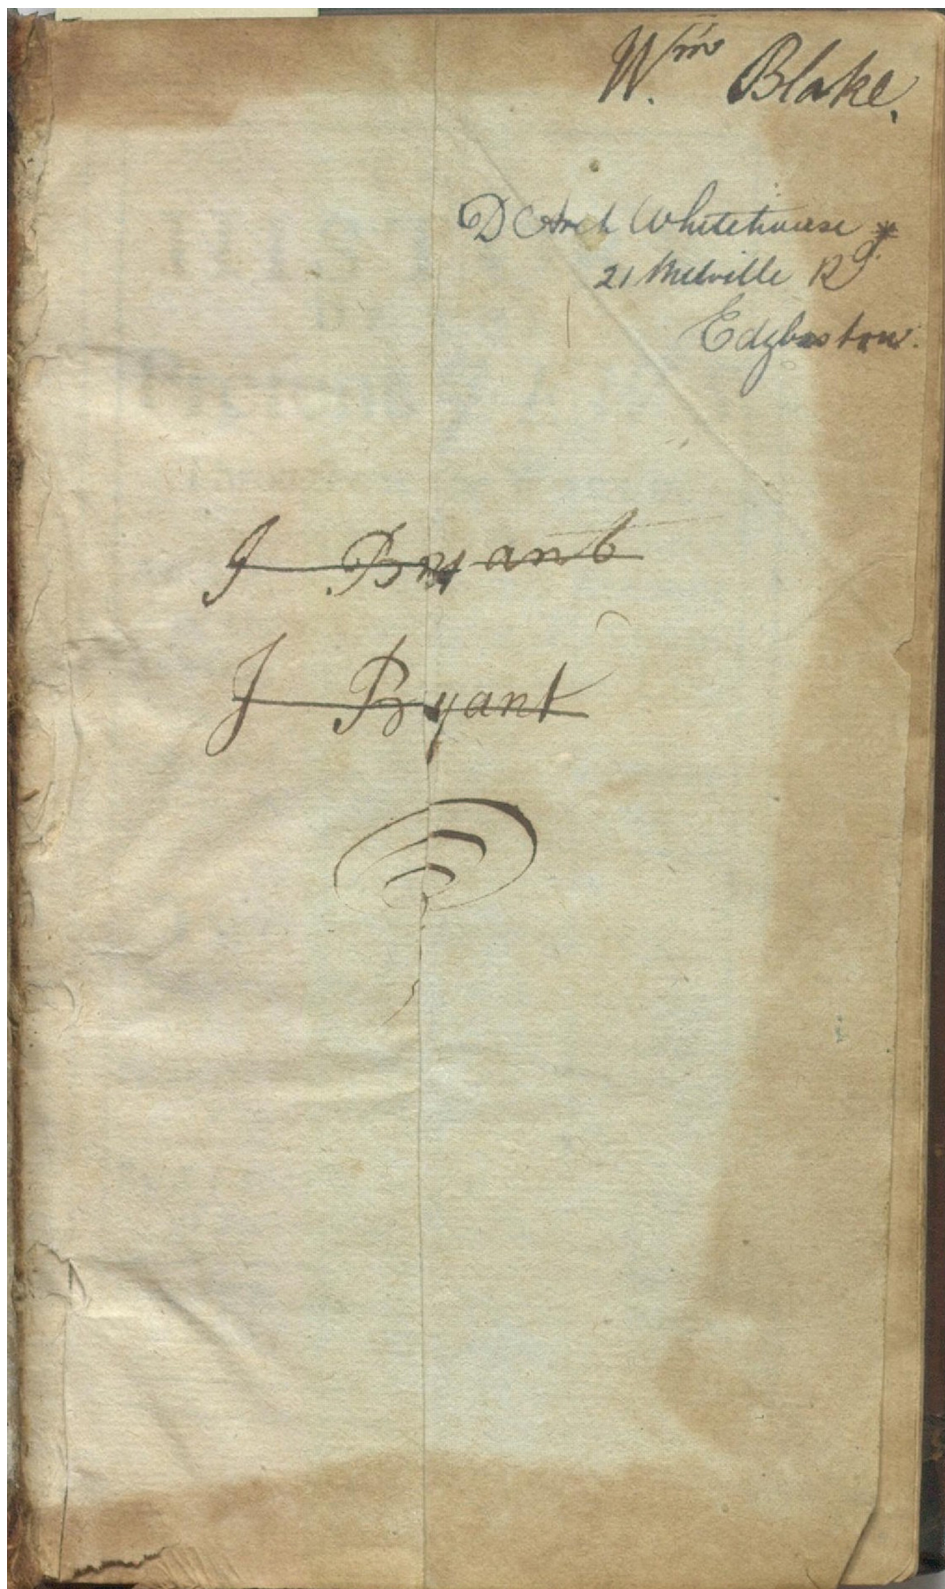 Wm. Blake.
D Arch Whitehouse *
21 Melville Rd.
Edgbaston.
J Bryant
J Bryant